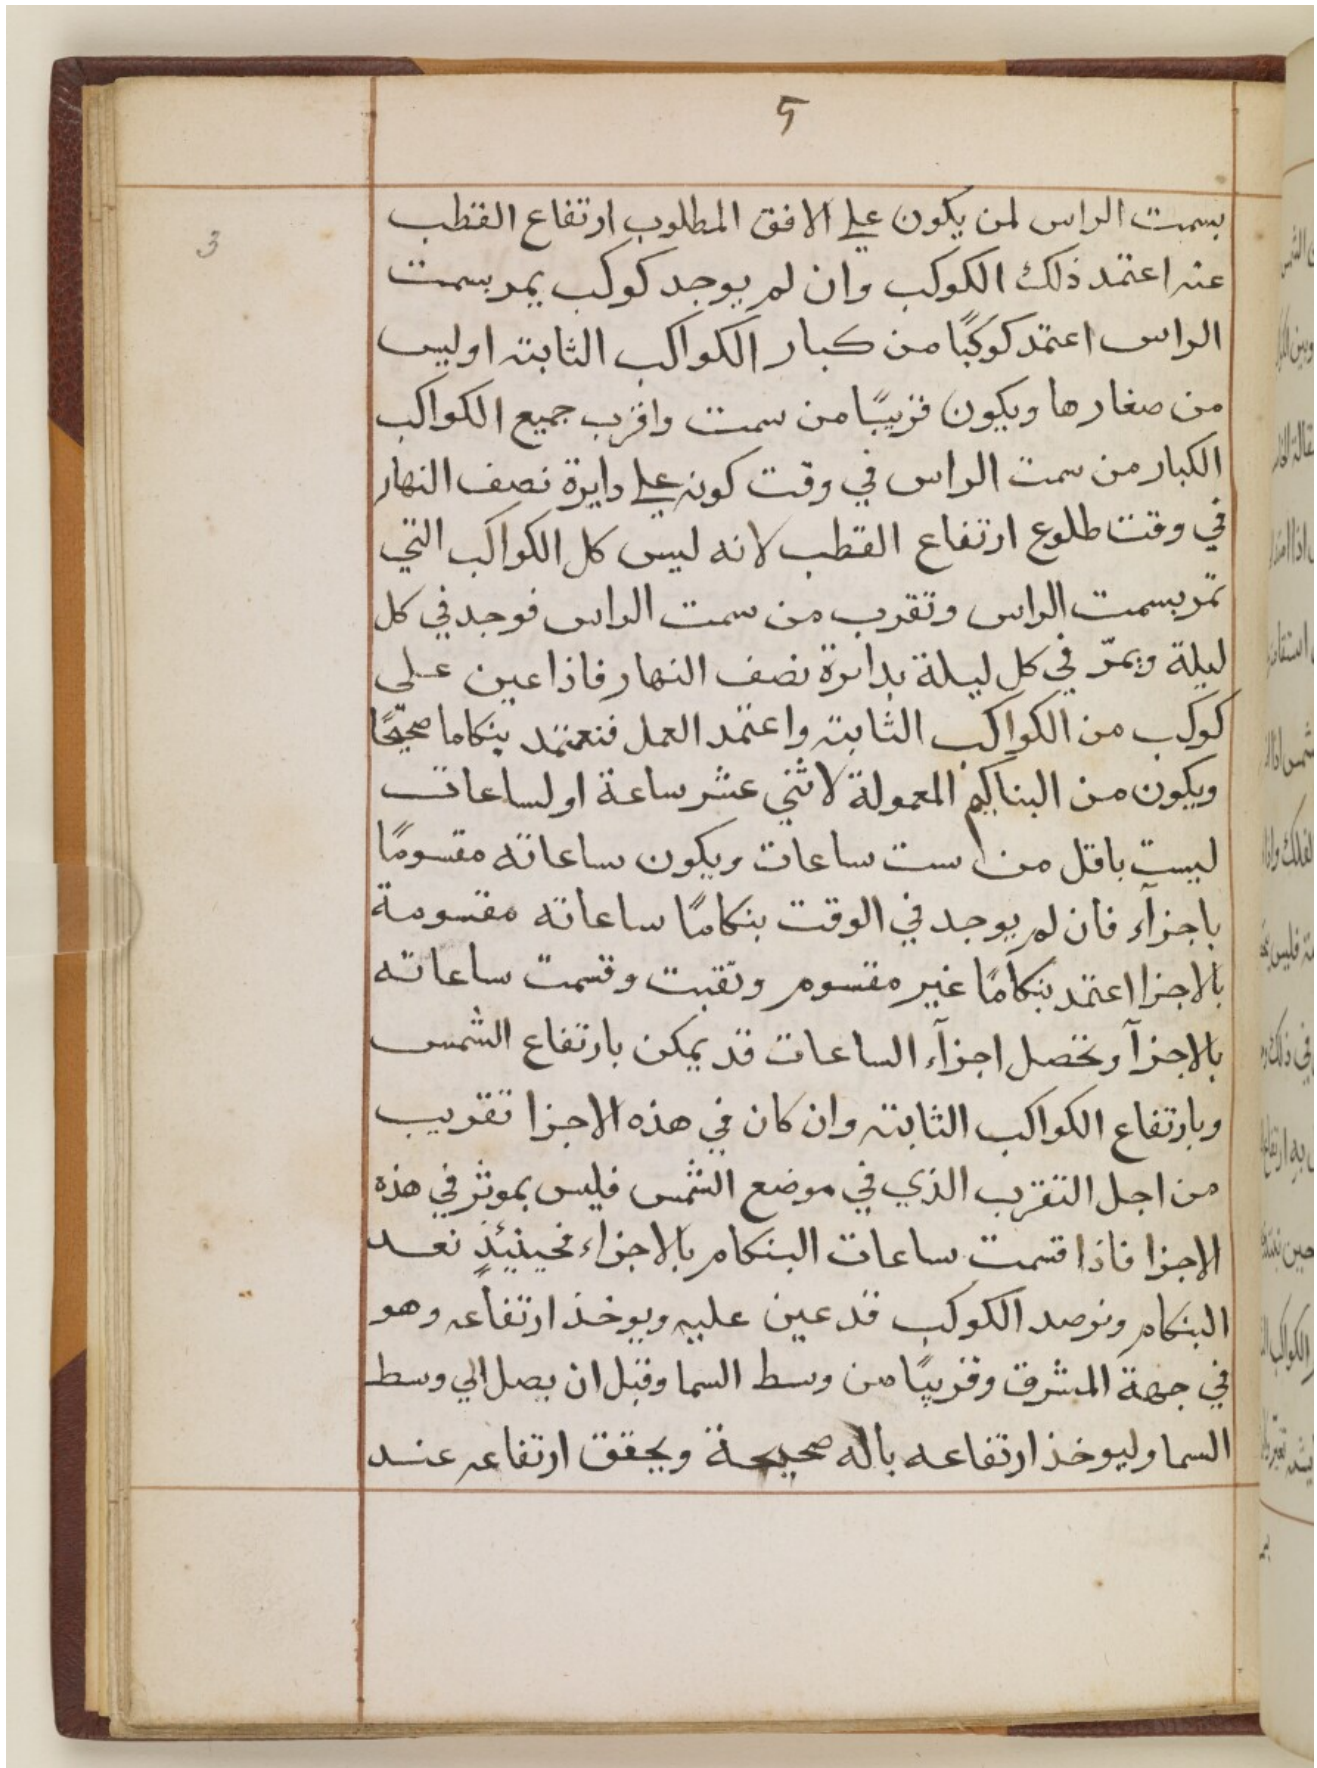 5
3
بسمت الراس لمن يكون على الافق المطلوب ارتفاع القطب
عنه اعتمد ذلك الكوكب وان لم يوجد كوكب يمر بسمت
الراس اعتمد كوكبًا من كبار الكواكب الثابته اوليس
من صغارها ويكون قريبًا من سمت واقرب جميع الكواكب
الكبار من سمت الراس في وقت كونه على دايرة نصف النهار
في وقت طلوع ارتفاع القطب لانه ليس كل الكواكب التي
تمر بسمت الراس وتقرب من سمت الراس فوجد في كل
ليلة ويمرّ في كل ليلة بدائرة نصف النهار فاذا عين على
كوكب من الكواكب الثابته واعتمد العمل فنعتمد بنكاما صحيحًا
ويكون من البناكيم المعمولة لاثني عشر ساعة او لساعات
ليست باقل من ست ساعات ويكون ساعاته مقسومًا
باجزآء فان لم يوجد في الوقت بنكامًا ساعاته مقسومة
بالاجزا اعتمد بنكامًا غير مقسوم ونقبت وقسمت ساعاته
بالاجزآ وتحصل اجزآء الساعات قد يمكن بارتفاع الشمس
وبارتفاع الكواكب الثابته وان كان في هذه الاجزا تقريب
من اجل التقرب الذي في موضع الشمس فليس بموثر في هذه
الاجزا فاذا قسمت ساعات البنكام بالاجزاء فحينئذٍ نعد
البنكام ونرصد الكوكب قد عين عليه ويوخذ ارتفاعه وهو
في جهة المشرق وقريبًا من وسط السما وقبل ان يصل الي وسط
السما وليوخذ ارتفاعه باله صحيحة ويحقق ارتفاعه عند